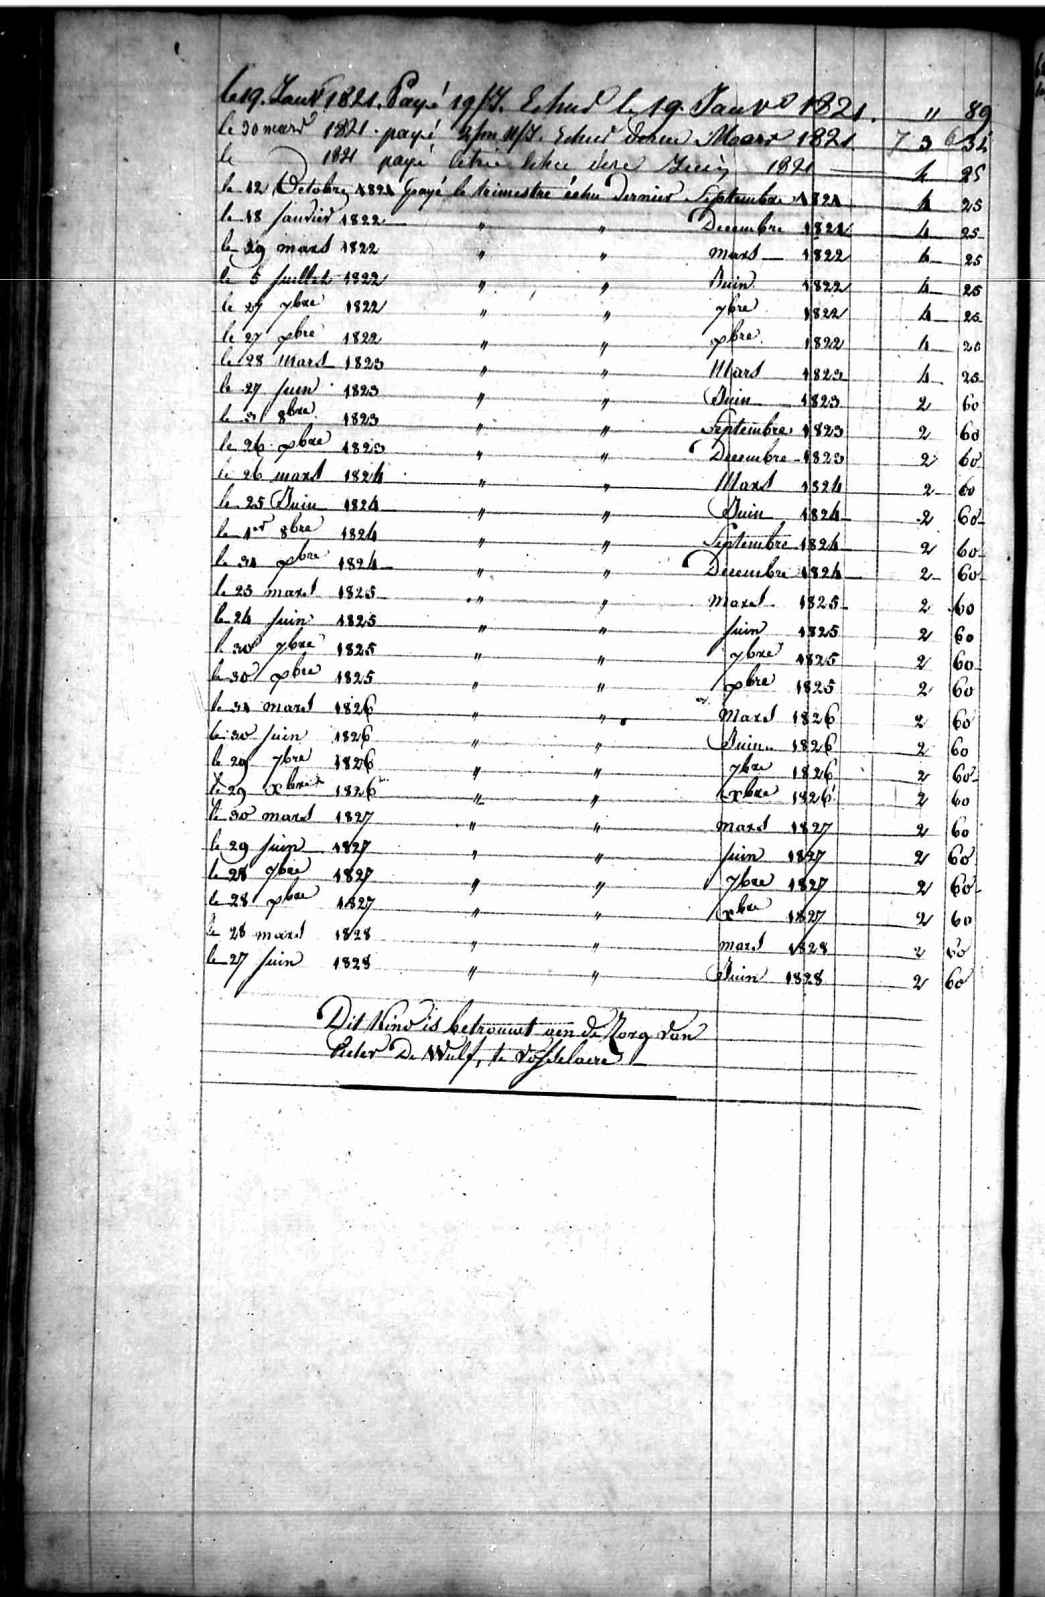 le 19. Janvr 1821. Payé 19/J. Echus le 19. Janvr 1821. " 89
le 30 mars 1821. payé Echus dernier Mars 1821 7 3 6 34
le 1821 payé le trie echu dere Juin 1821 4 25
le 12 Octobre 1821 payé le trimestre échu dernier Septembre 1821 4 25
le 18 janvier 1822 " " Decembre 1821 4 25
le 29 mars 1822 " " mars 1822 4 25
le 5 juillet 1822 " " Juin 1822 4 25
le 27 7bre 1822 " " 7bre 1822 4 25
le 27 xbre 1822 " " xbre 1822 4 25
le 28 mars 1823 " " Mars 1823 4 25
le 27 juin 1823 " " Juin 1823 2 60
le 31 8bre 1823 " " Septembre 1823 2 60
le 26 xbre 1823 " " Decembre 1823 2 60
le 26 mars 1824 " " Mars 1824 2 60
le 25 Juin 1824 " " Juin 1824 2 60
le 1er 8bre 1824 " " Septembre 1824 2 60
le 31 xbre 1824 " " Decembre 1824 2 60
le 25 mars 1825 " " mars 1825 2 60
le 24 juin 1825 " " juin 1825 2 60
le 30 7bre 1825 " " 7bre 1825 2 60
le 30 xbre 1825 " " xbre 1825 2 60
le 31 mars 1826 " " mars 1826 2 60
le 30 juin 1826 " " Juin 1826 2 60
le 29 7bre 1826 " " 7bre 1826 2 60
le 29 xbre 1826 " " xbre 1826 2 60
le 30 mars 1827 " " mars 1827 2 60
le 29 juin 1827 " " juin 1827 2 60
le 28 7bre 1827 " " 7bre 1827 2 60
le 28 xbre 1827 " " xbre 1827 2 60
le 28 mars 1828 " " mars 1828 2 60
le 27 juin 1828 " " Juin 1828 2 60
Dit Kind is betrouwt aen de Zorg van
Pieter De Wulf, te Vosselaere